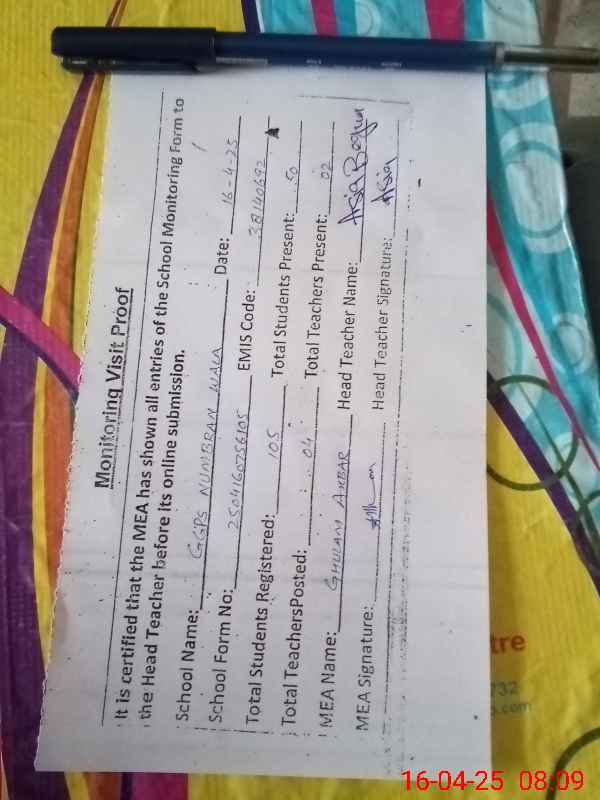 Monitoring Visit Proof
It is certified that the MEA has shown all entries of the School Monitoring Form to
the Head Teacher before its online submission.
School Name: GGPS NUMBRAN WALA Date: 16-4-25
School Form No: 2504160756105 EMIS Code: 38140692
Total Students Registered: 105 Total Students Present: 50
Total TeachersPosted: 04 Total Teachers Present: 02
MEA Name: GHULAM AKBAR Head Teacher Name:
MEA Signature: Head Teacher Signature: Asia
tre
732
.com
16-04-25 08:09